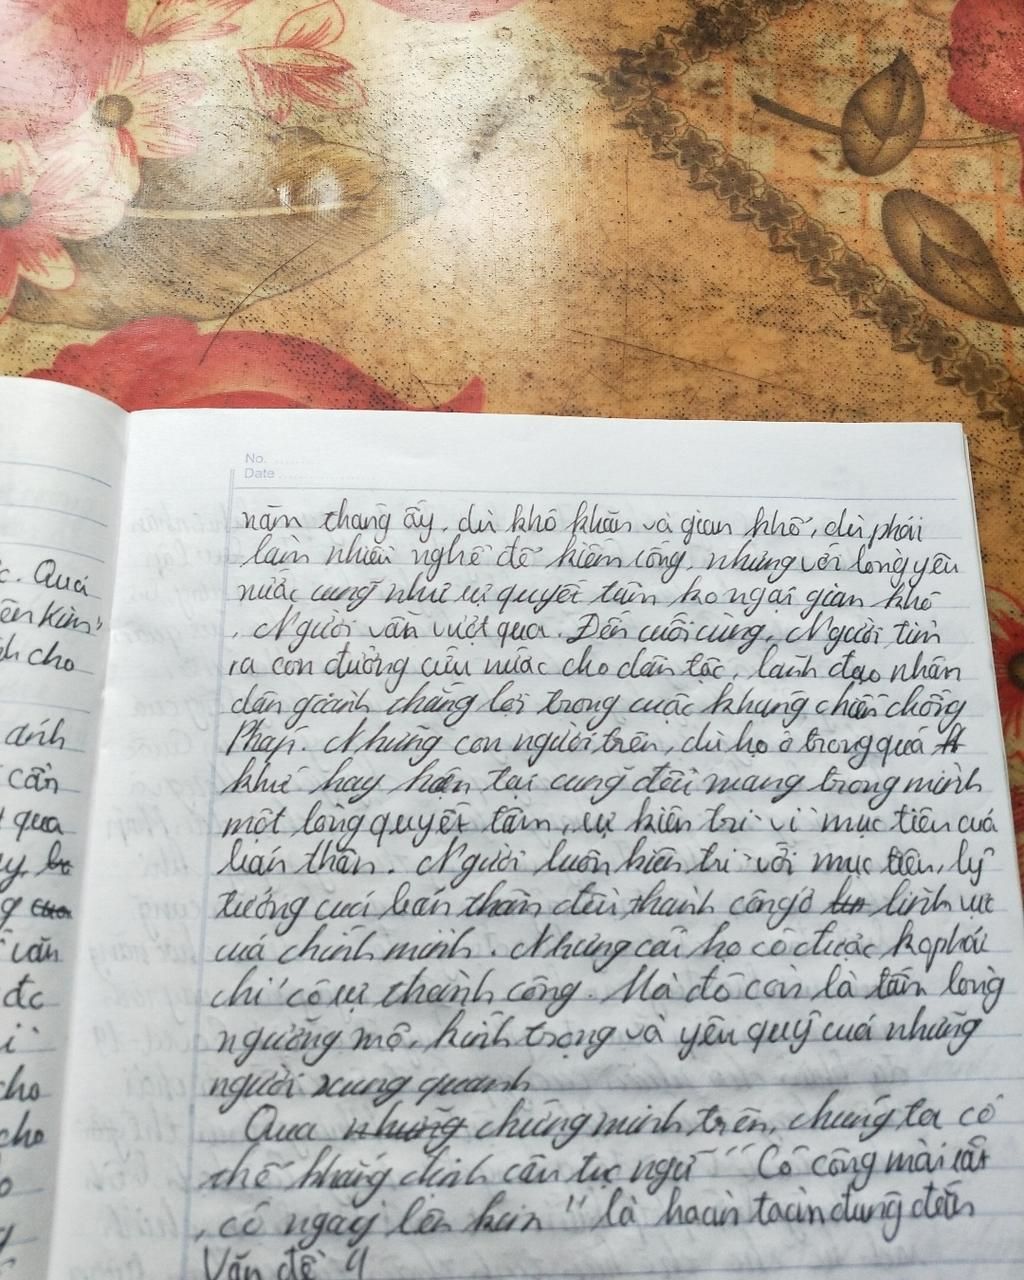 No. ........
Date ....................
năm tháng ấy, dù khó khăn và gian khổ, dù phải
làm nhiều nghề để kiếm sống, nhưng với lòng yêu
nước cũng như sự quyết tâm ko ngại gian khổ
, Người vẫn vượt qua. Đến cuối cùng, Người tìm
ra con đường cứu nước cho dân tộc, lãnh đạo nhân
dân giành chắng lợi trong cuộc kháng chiến chống
Pháp. Những con người trên, dù họ ở trong quá
khứ hay hiện tại cũng đều mang trong mình
một lòng quyết tâm, sự kiên trì vì mục tiêu của
bản thân. Người luôn kiên trì với mục tiêu, lý
tưởng của bản thân đều thành công ở lĩnh vực
của chính mình. Nhưng cái họ có được ko phải
chỉ có sự thành công. Mà đó còn là tấm lòng
ngưỡng mộ, kính trọng và yêu quý của những
người xung quanh
Qua những chứng minh trên, chúng ta có
thể khẳng định câu tục ngữ "Có công mài sắt
, có ngày lên kim" là hoàn toàn đúng đắn
Văn đề 4
c. Quá
ên Kim"
nh cho
ánh
cần
qua
y
g
văn
đc
cho
cho